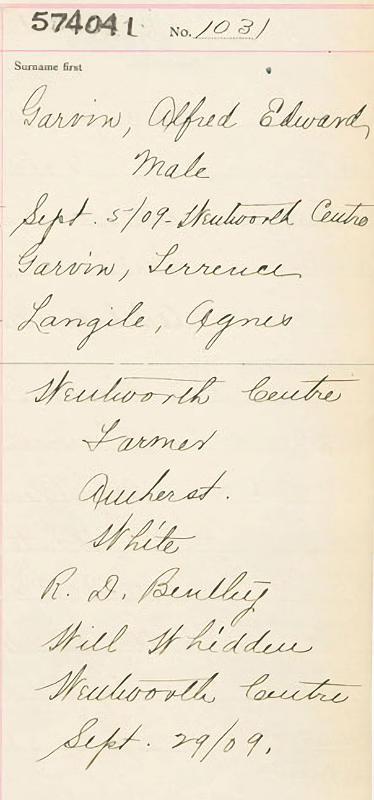 574041 No. 1031
Surname first
Garvin, Alfred Edward
Male
Sept. 5/09 - Wentworth Centre
Garvin, Terrence
Langile, Agnes
Wentworth Centre
Farmer
Amherst.
White
R. D. Bentley
Will Whidden
Wentworth Centre
Sept. 29/09.